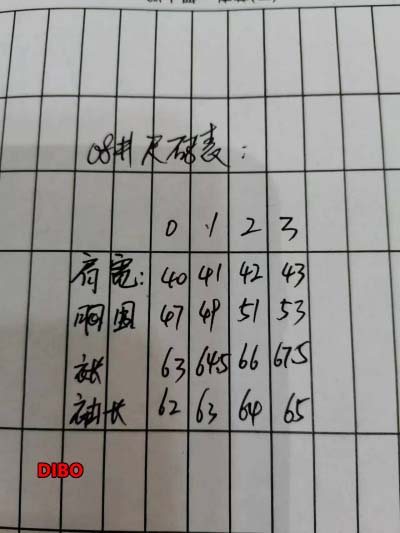 08# 尺码表:
0 1 2 3
肩宽: 40 41 42 43
胸围 47 49 51 53
衣长 63 64.5 66 67.5
袖长 62 63 64 65
DIBO